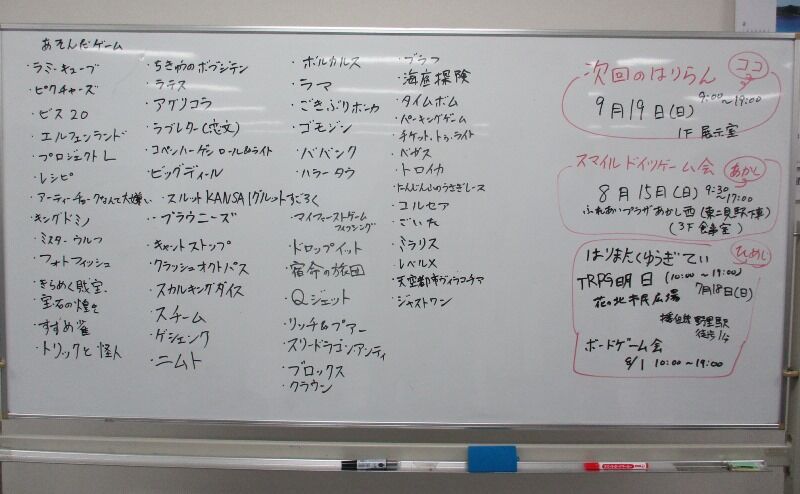 あそんだゲーム
・ラミィキューブ
・ピクチャーズ
・ビス20
・エルフェンランド
・プロジェクトL
・レシピ
・アーティチョークなんて大嫌い
・キングドミノ
・ミスターウルフ
・フォトフィッシュ
・きらめく財宝
・宝石の煌き
・すずめ雀
・トリックと怪人
・ちきゅうのボブジテン
・ラテス
・アグリコラ
・ラブレター(恋文)
・コペンハーゲン ロール&ライト
・ビッグディール
・スルットKANSAIグルットすごろく
・ブラウニーズ
・キャントストップ
・クラッシュオクトパス
・スカルキングダイス
・スチーム
・ゲシェンク
・ニムト
・ボルカルス
・ラマ
・ごきぶりポーカー
・ゴモジン
・ババンク
・ハラータウ
・マイファーストゲーム
フィッシング
・ドロップイット
・宿命の旅団
・Qジェット
・リッチ&プアー
・スリードラゴンアンティ
・ブロックス
・クラウン
・ブラフ
・海底探険
・タイムボム
・パーキングゲーム
・チケットトゥライド
・ベガス
・トロイカ
・たんじんしゅうさぎレース
・コルセア
・ごいた
・ミラリス
・レベルX
・天空都市ヴィラコチャ
・ジャストワン
次回のはりらん ココ
9月19日(日) 9:00~17:00
1F 展示室
スマイルドイツゲーム会 あかし
8月15日(日) 9:30~17:00
ふれあいプラザあかし西(東二見駅下車)
(3F 食事室)
はりまたくゆうぎてい ひめじ
TRPG 明日 (10:00~19:00)
7月18日(日)
花の北市民広場
播但線 野里駅
徒歩1分
ボードゲーム会
8/1 10:00~19:00